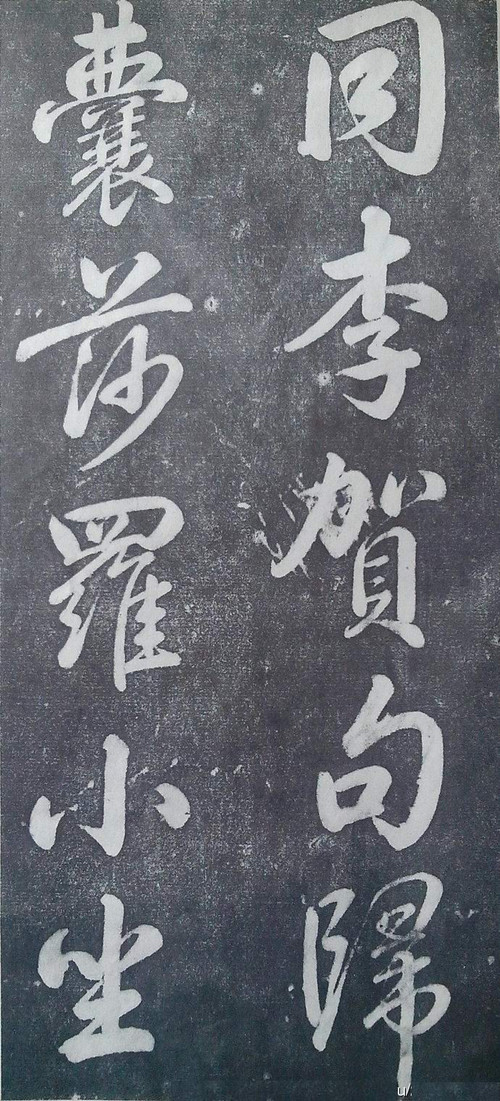 同李賀句歸
囊莎羅小坐
u/